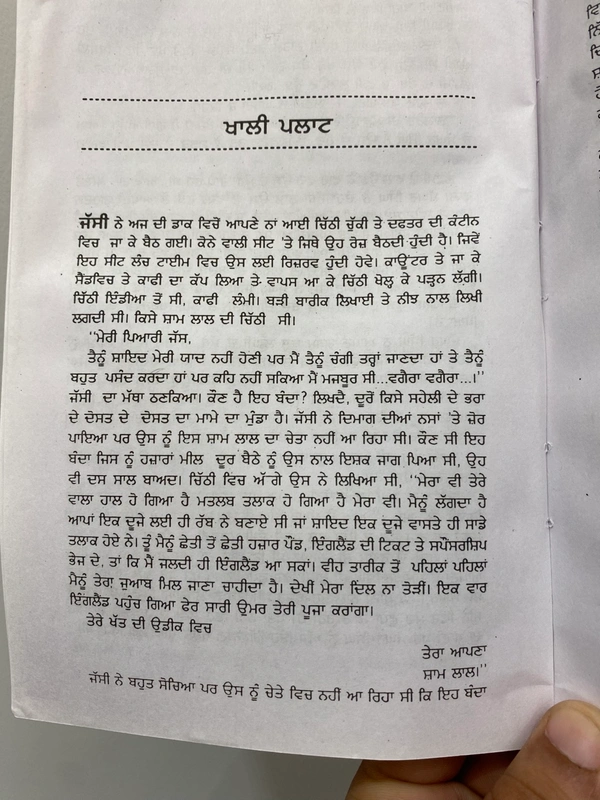 ਖਾਲੀ ਪਲਾਟ
ਜੱਸੀ ਨੇ ਅਜ ਦੀ ਡਾਕ ਵਿਚੋਂ ਆਪਣੇ ਨਾਂ ਆਈ ਚਿੱਠੀ ਚੁੱਕੀ ਤੇ ਦਫਤਰ ਦੀ ਕੰਟੀਨ
ਵਿਚ ਜਾ ਕੇ ਬੈਠ ਗਈ। ਕੋਨੇ ਵਾਲੀ ਸੀਟ 'ਤੇ ਜਿਥੇ ਉਹ ਰੋਜ਼ ਬੈਠਦੀ ਹੁੰਦੀ ਹੈ। ਜਿਵੇਂ
ਇਹ ਸੀਟ ਲੰਚ ਟਾਈਮ ਵਿਚ ਉਸ ਲਈ ਰਿਜ਼ਰਵ ਹੁੰਦੀ ਹੋਵੇ। ਕਾਊਂਟਰ ਤੇ ਜਾ ਕੇ
ਸੈਂਡਵਿਚ ਤੇ ਕਾਫੀ ਦਾ ਕੱਪ ਲਿਆ ਤੇ ਵਾਪਸ ਆ ਕੇ ਚਿੱਠੀ ਖੋਲ੍ਹ ਕੇ ਪੜ੍ਹਨ ਲੱਗੀ।
ਚਿੱਠੀ ਇੰਡੀਆ ਤੋਂ ਸੀ, ਕਾਫੀ ਲੰਮੀ। ਬੜੀ ਬਾਰੀਕ ਲਿਖਾਈ ਤੇ ਨੀਝ ਨਾਲ ਲਿਖੀ
ਲਗਦੀ ਸੀ। ਕਿਸੇ ਸ਼ਾਮ ਲਾਲ ਦੀ ਚਿੱਠੀ ਸੀ।
‘‘ਮੇਰੀ ਪਿਆਰੀ ਜੱਸ,
ਤੈਨੂੰ ਸ਼ਾਇਦ ਮੇਰੀ ਯਾਦ ਨਹੀਂ ਹੋਣੀ ਪਰ ਮੈਂ ਤੈਨੂੰ ਚੰਗੀ ਤਰ੍ਹਾਂ ਜਾਣਦਾ ਹਾਂ ਤੇ ਤੈਨੂੰ
ਬਹੁਤ ਪਸੰਦ ਕਰਦਾ ਹਾਂ ਪਰ ਕਹਿ ਨਹੀਂ ਸਕਿਆ ਮੈਂ ਮਜਬੂਰ ਸੀ...ਵਗੈਰਾ ਵਗੈਰਾ...।’’
ਜੱਸੀ ਦਾ ਮੱਥਾ ਠਣਕਿਆ। ਕੌਣ ਹੈ ਇਹ ਬੰਦਾ? ਲਿਖਦੈ, ਦੂਰੋਂ ਕਿਸੇ ਸਹੇਲੀ ਦੇ ਭਰਾ
ਦੇ ਦੋਸਤ ਦੇ ਦੋਸਤ ਦਾ ਮਾਮੇ ਦਾ ਮੁੰਡਾ ਹੈ। ਜੱਸੀ ਨੇ ਦਿਮਾਗ ਦੀਆਂ ਨਸਾਂ 'ਤੇ ਜ਼ੋਰ
ਪਾਇਆ ਪਰ ਉਸ ਨੂੰ ਇਸ ਸ਼ਾਮ ਲਾਲ ਦਾ ਚੇਤਾ ਨਹੀਂ ਆ ਰਿਹਾ ਸੀ। ਕੌਣ ਸੀ ਇਹ
ਬੰਦਾ ਜਿਸ ਨੂੰ ਹਜ਼ਾਰਾਂ ਮੀਲ ਦੂਰ ਬੈਠੇ ਨੂੰ ਉਸ ਨਾਲ ਇਸ਼ਕ ਜਾਗ ਪਿਆ ਸੀ, ਉਹ
ਵੀ ਦਸ ਸਾਲ ਬਾਅਦ। ਚਿੱਠੀ ਵਿਚ ਅੱਗੇ ਉਸ ਨੇ ਲਿਖਿਆ ਸੀ, ‘‘ਮੇਰਾ ਵੀ ਤੇਰੇ
ਵਾਲਾ ਹਾਲ ਹੋ ਗਿਆ ਹੈ ਮਤਲਬ ਤਲਾਕ ਹੋ ਗਿਆ ਹੈ ਮੇਰਾ ਵੀ। ਮੈਨੂੰ ਲੱਗਦਾ ਹੈ
ਆਪਾਂ ਇਕ ਦੂਜੇ ਲਈ ਹੀ ਰੱਬ ਨੇ ਬਣਾਏ ਸੀ ਜਾਂ ਸ਼ਾਇਦ ਇਕ ਦੂਜੇ ਵਾਸਤੇ ਹੀ ਸਾਡੇ
ਤਲਾਕ ਹੋਏ ਨੇ। ਤੂੰ ਮੈਨੂੰ ਛੇਤੀ ਤੋਂ ਛੇਤੀ ਹਜ਼ਾਰ ਪੌਂਡ, ਇੰਗਲੈਂਡ ਦੀ ਟਿਕਟ ਤੇ ਸਪੌਂਸਰਸ਼ਿਪ
ਭੇਜ ਦੇ, ਤਾਂ ਕਿ ਮੈਂ ਜਲਦੀ ਹੀ ਇੰਗਲੈਂਡ ਆ ਸਕਾਂ। ਵੀਹ ਤਾਰੀਕ ਤੋਂ ਪਹਿਲਾਂ ਪਹਿਲਾਂ
ਮੈਨੂੰ ਤੇਰਾ ਜੁਆਬ ਮਿਲ ਜਾਣਾ ਚਾਹੀਦਾ ਹੈ। ਦੇਖੀਂ ਮੇਰਾ ਦਿਲ ਨਾ ਤੋੜੀਂ। ਇਕ ਵਾਰ
ਇੰਗਲੈਂਡ ਪਹੁੰਚ ਗਿਆ ਫੇਰ ਸਾਰੀ ਉਮਰ ਤੇਰੀ ਪੂਜਾ ਕਰਾਂਗਾ।
ਤੇਰੇ ਖੱਤ ਦੀ ਉਡੀਕ ਵਿਚ
ਤੇਰਾ ਆਪਣਾ
ਸ਼ਾਮ ਲਾਲ।’’
ਜੱਸੀ ਨੇ ਬਹੁਤ ਸੋਚਿਆ ਪਰ ਉਸ ਨੂੰ ਚੇਤੇ ਵਿਚ ਨਹੀਂ ਆ ਰਿਹਾ ਸੀ ਕਿ ਇਹ ਬੰਦਾ